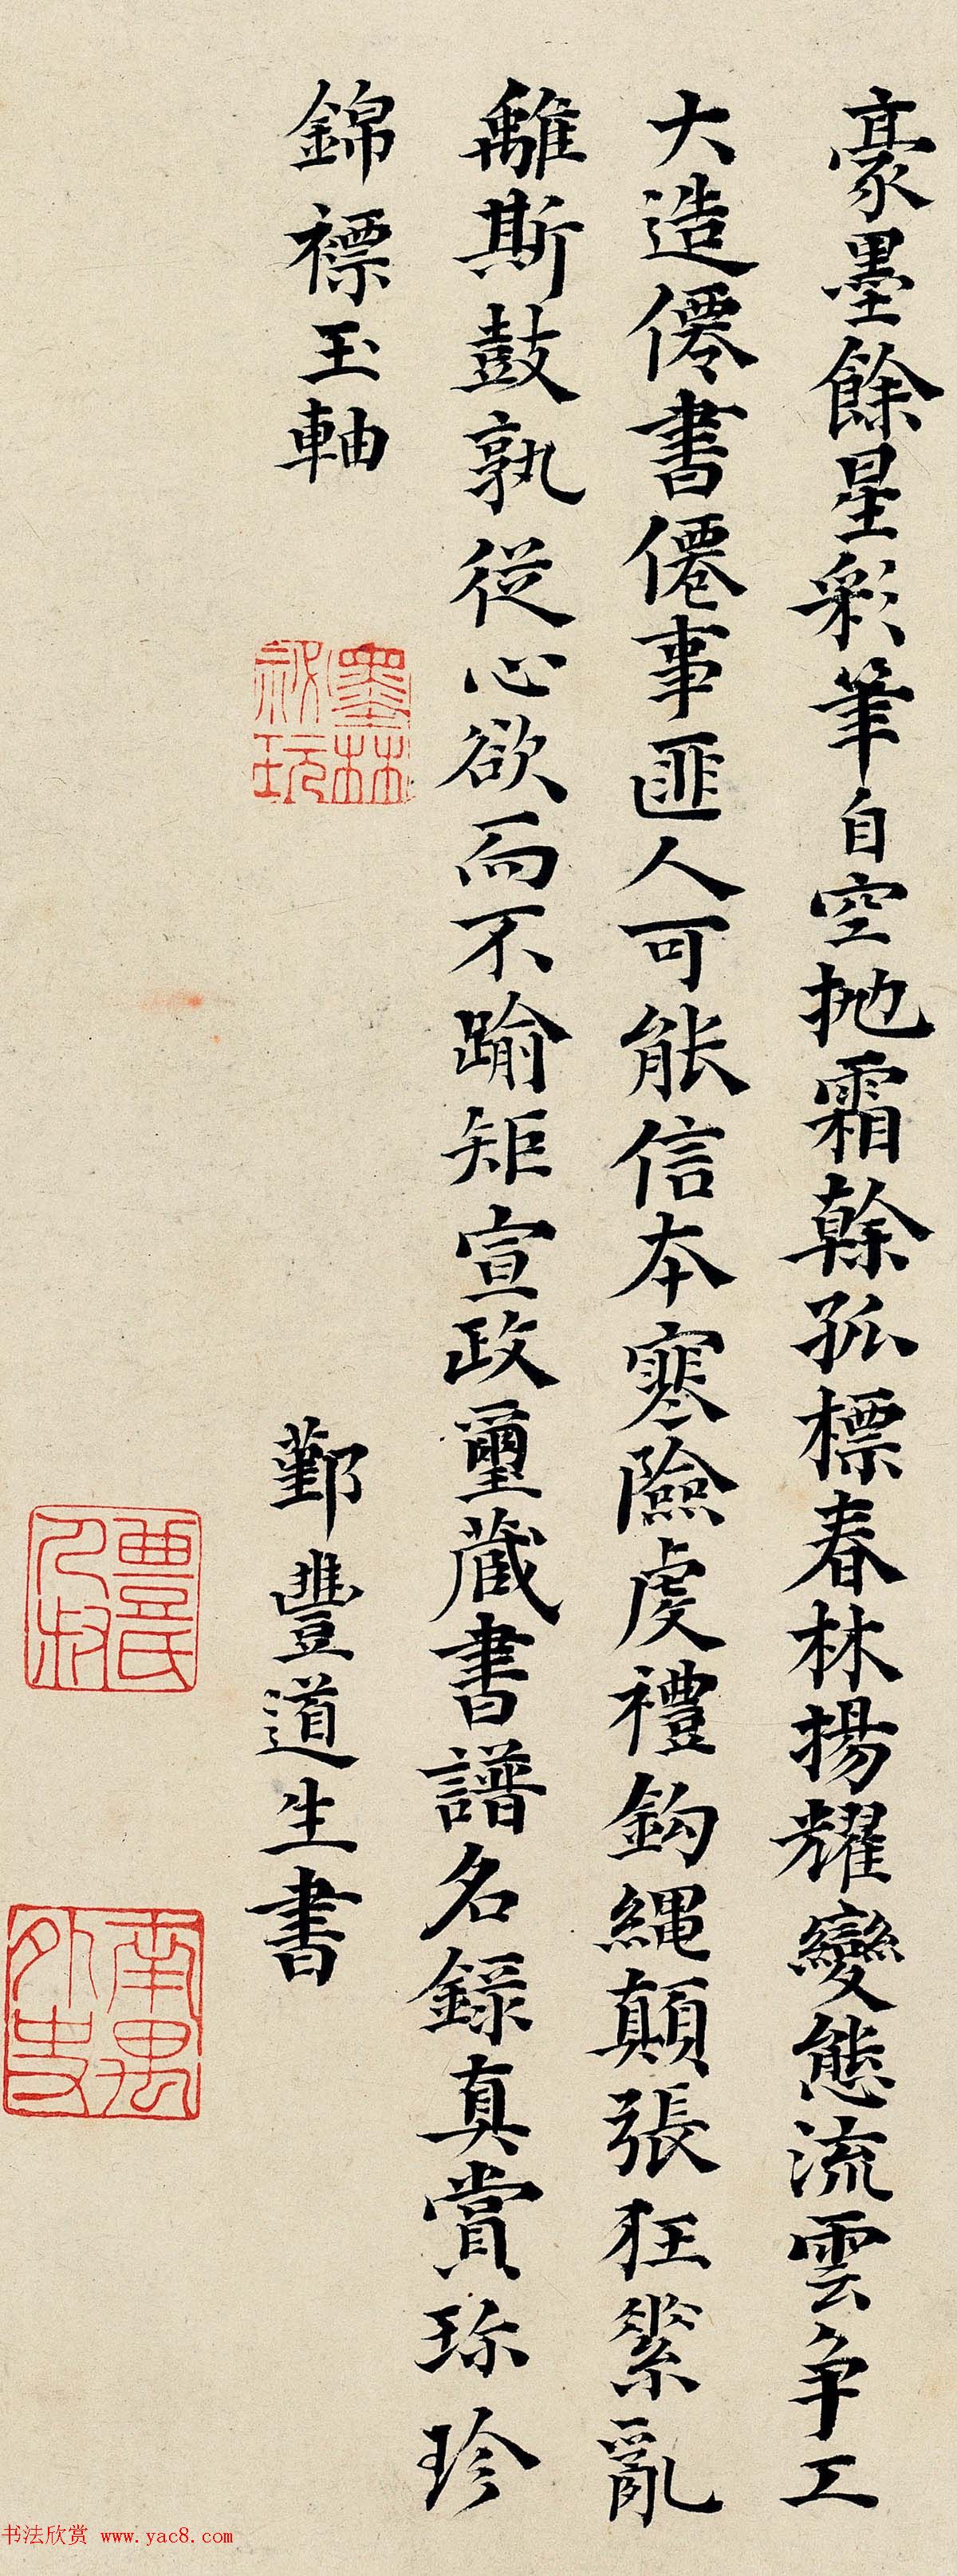 豪墨餘星彩筆自空拋霜榦孤標春林揚耀變態流雲爭工
大造僊書僊事匪人可能信本寒險虔禮鈎繩顛張狂縈亂
離斯鼓孰從心欲而不踰矩宣政璽藏書譜名錄真賞珎珍
錦褾玉軸
鄞豐道生書
墨林祕玩
豐氏人叔
南禺外史
书法欣赏 www.yac8.com